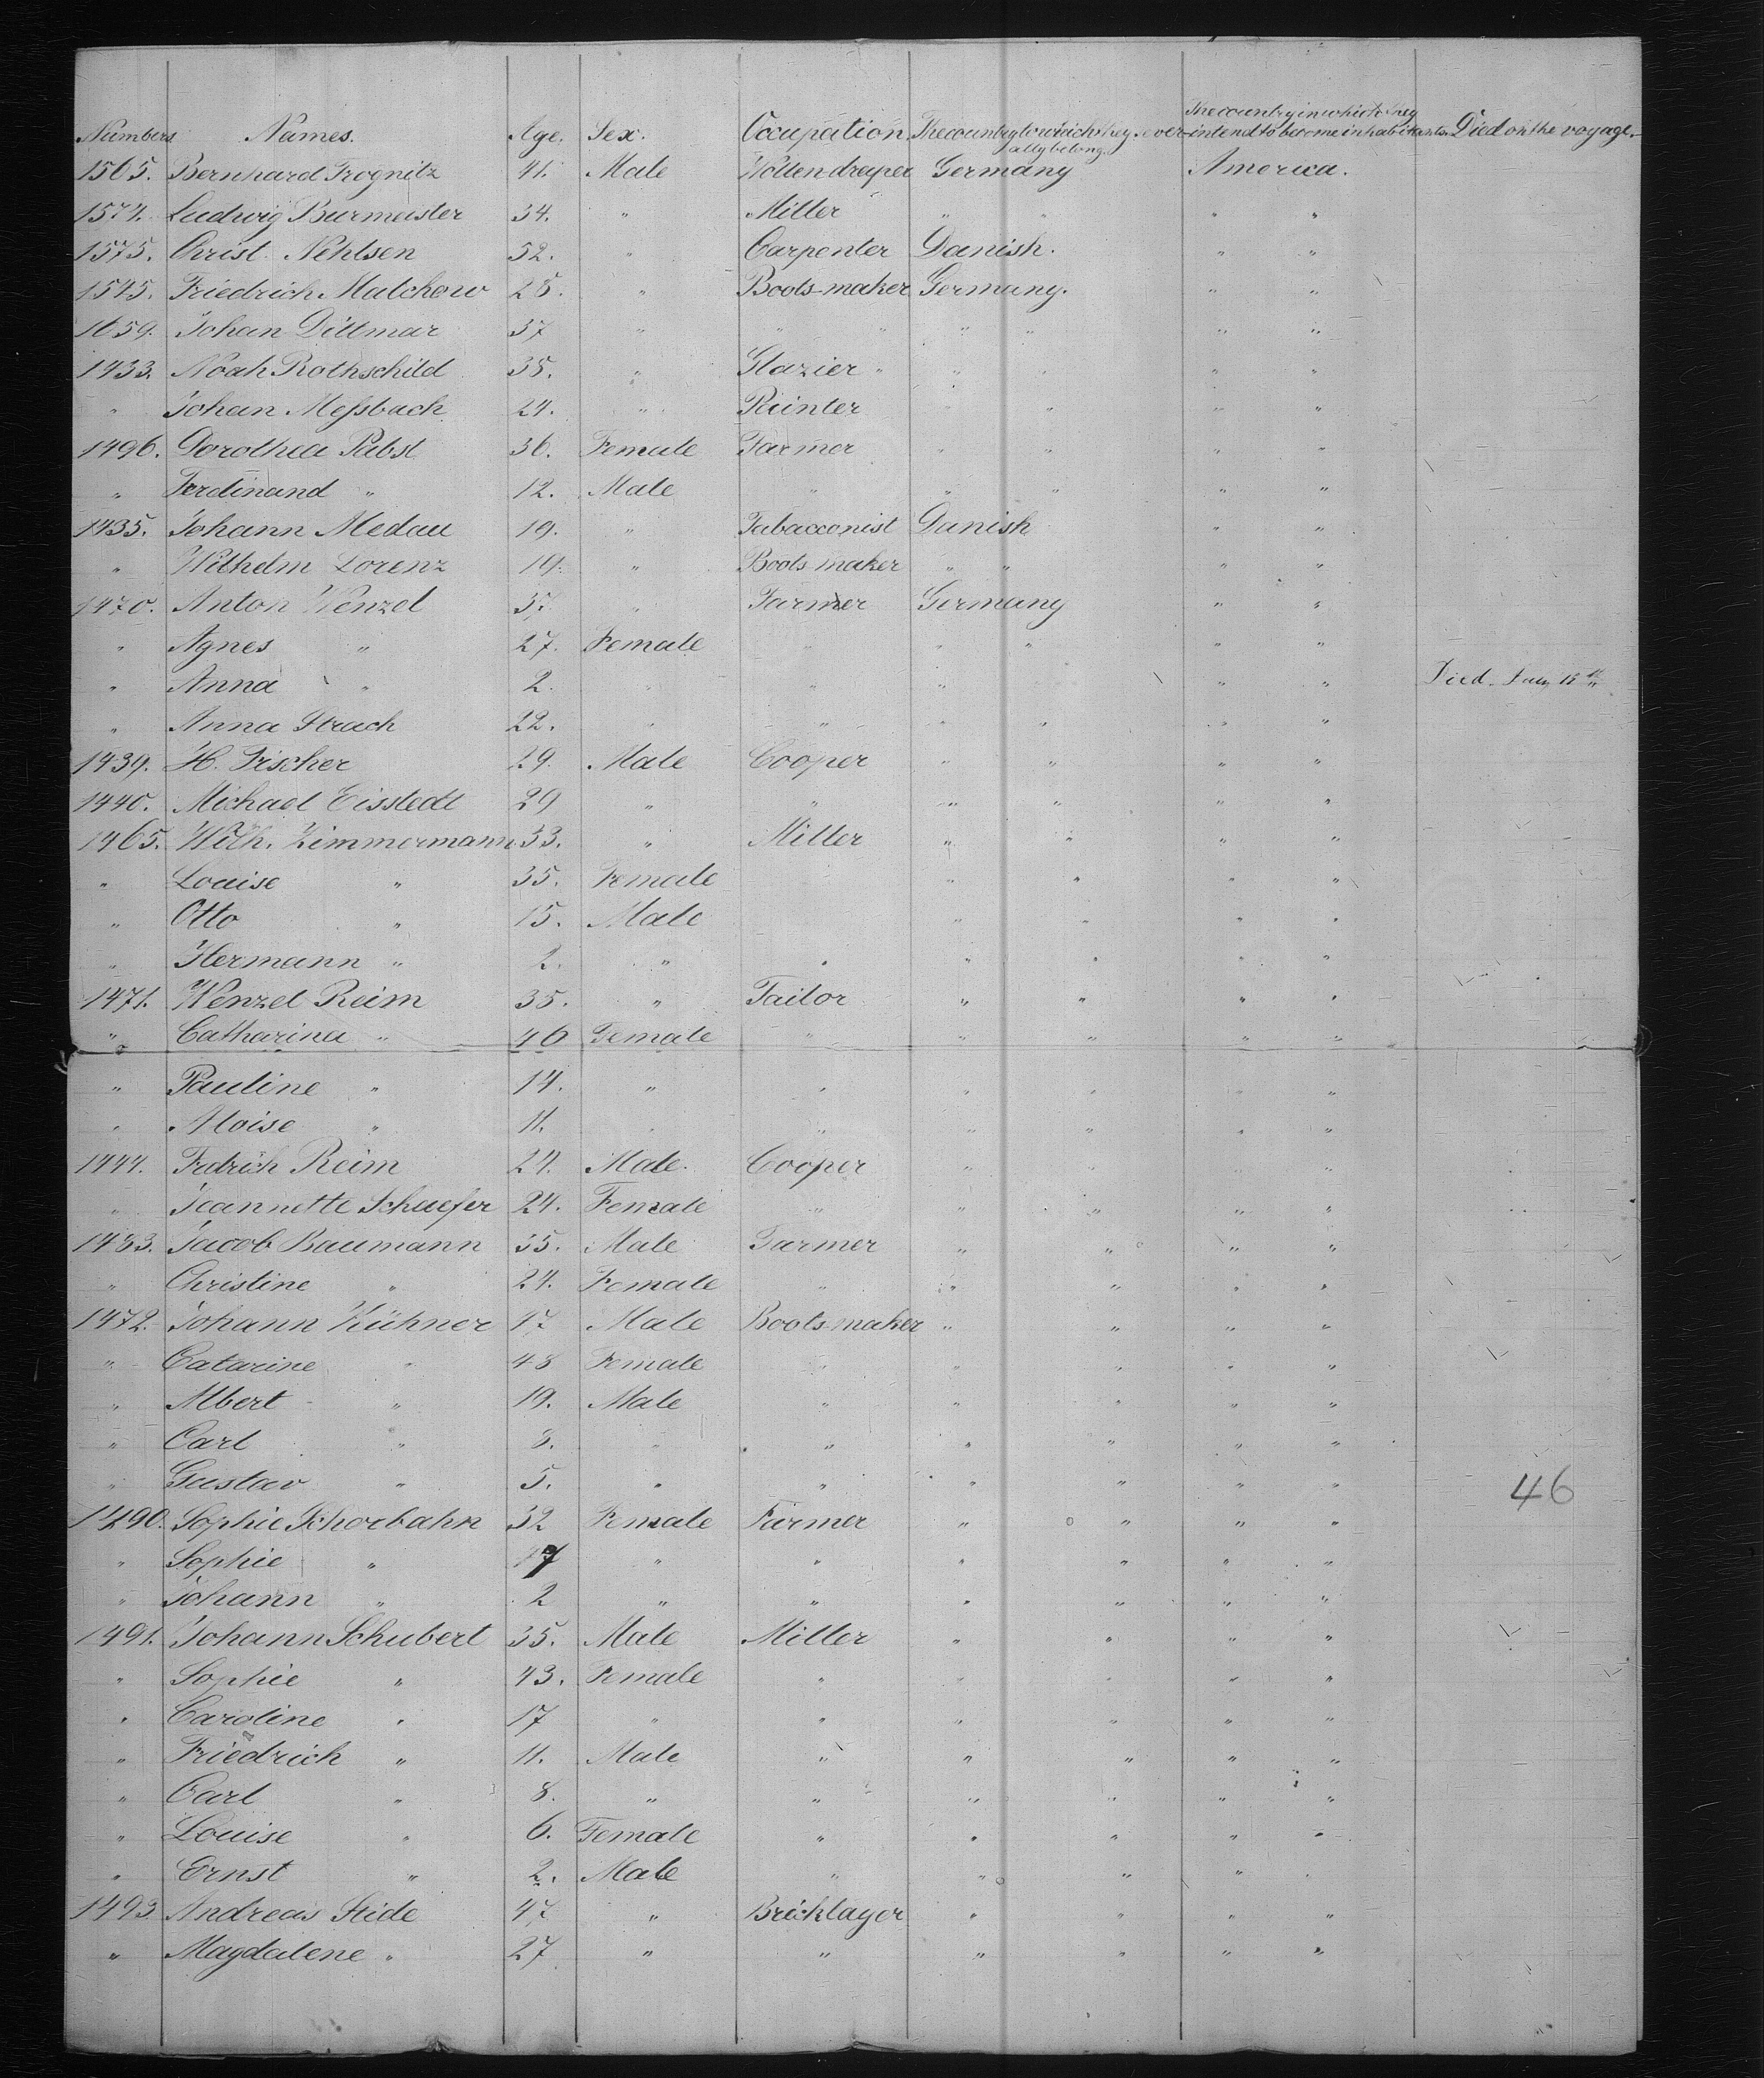 Numbers Names. Age. Sex. Occupation. The country to which they severally belong. The country in which they intend to become inhabitants. Died on the voyage.
1565. Bernhard Trognitz 41. Male Wollen-draper Germany America.
1574. Ludwig Burmeister 34. " Miller " " " "
1575. Christ. Nehlsen 52. " Carpenter Danish. " "
1545. Friedrich Malchow 28. " Boots-maker Germany. " "
1659. Johan Dittmar 37 " " " " " " "
1433. Noah Rothschild 35. " Glazier " " " " "
" Johan Meſsbach 24. " Painter " " " "
1496. Dorothea Pabst 36. Female Farmer " " " "
" Ferdinand " 12. Male " " " " "
1435. Johann Medau 19. " Tabacconist Danish " "
" Wilhelm Lorenz 19. " Boots maker " " " "
1470. Anton Wenzel " Farmer Germany " "
" Agnes " 27. Female " " " " "
" Anna " 2. " " " " " Died 
" Anna Strach 22. " " " " " "
1439. H. Fischer 29. Male Cooper " " " "
1440. Michael Eisstedt 29 " " " " " "
1465. Wilh. Zimmermann 33. " Miller " " " "
" Louise " 35. Female " " " "
" Otto " 15. Male " " " "
" Hermann " 2. " " " " " "
1471. Wenzel Reim 35. " Tailor " " " "
" Catharina " 46 Female " " " " "
" Pauline " 14. " " " " " "
" Aloise " 11. " " " " " "
1444. Fridrich Reim 24. Male. Cooper " " " "
" Jeannette Schaefer 24. Female " " " " "
1483. Jacob Baumann 35. Male Farmer " " " "
" Christine " 24. Female " " " " "
1472. Johann Kühner 47 Male Boots-maker " " " "
" Catarine " 48 Female " " " " "
" Albert " 19. Male " " " " "
" Carl " 8. " " " " " "
" Gustav " 5. " " " " " "
46
1490. Sophie Schorbahn 32 Female Farmer " " " "
" Sophie " 7 " " " " " "
" Johann " 2 " " " " " "
1491. Johann Schubert 35. Male Miller " " " "
" Sophie " 43. Female " " " " "
" Caroline " 17 " " " " " "
" Friedrich " 11. Male " " " " "
" Carl " 8. " " " " " "
" Louise " 6. Female " " " " "
" Ernst " 2. Male " " " " "
1493 Andreas Stide 47 " Bricklayer " " " "
" Magdalene " 27 " " " " " "